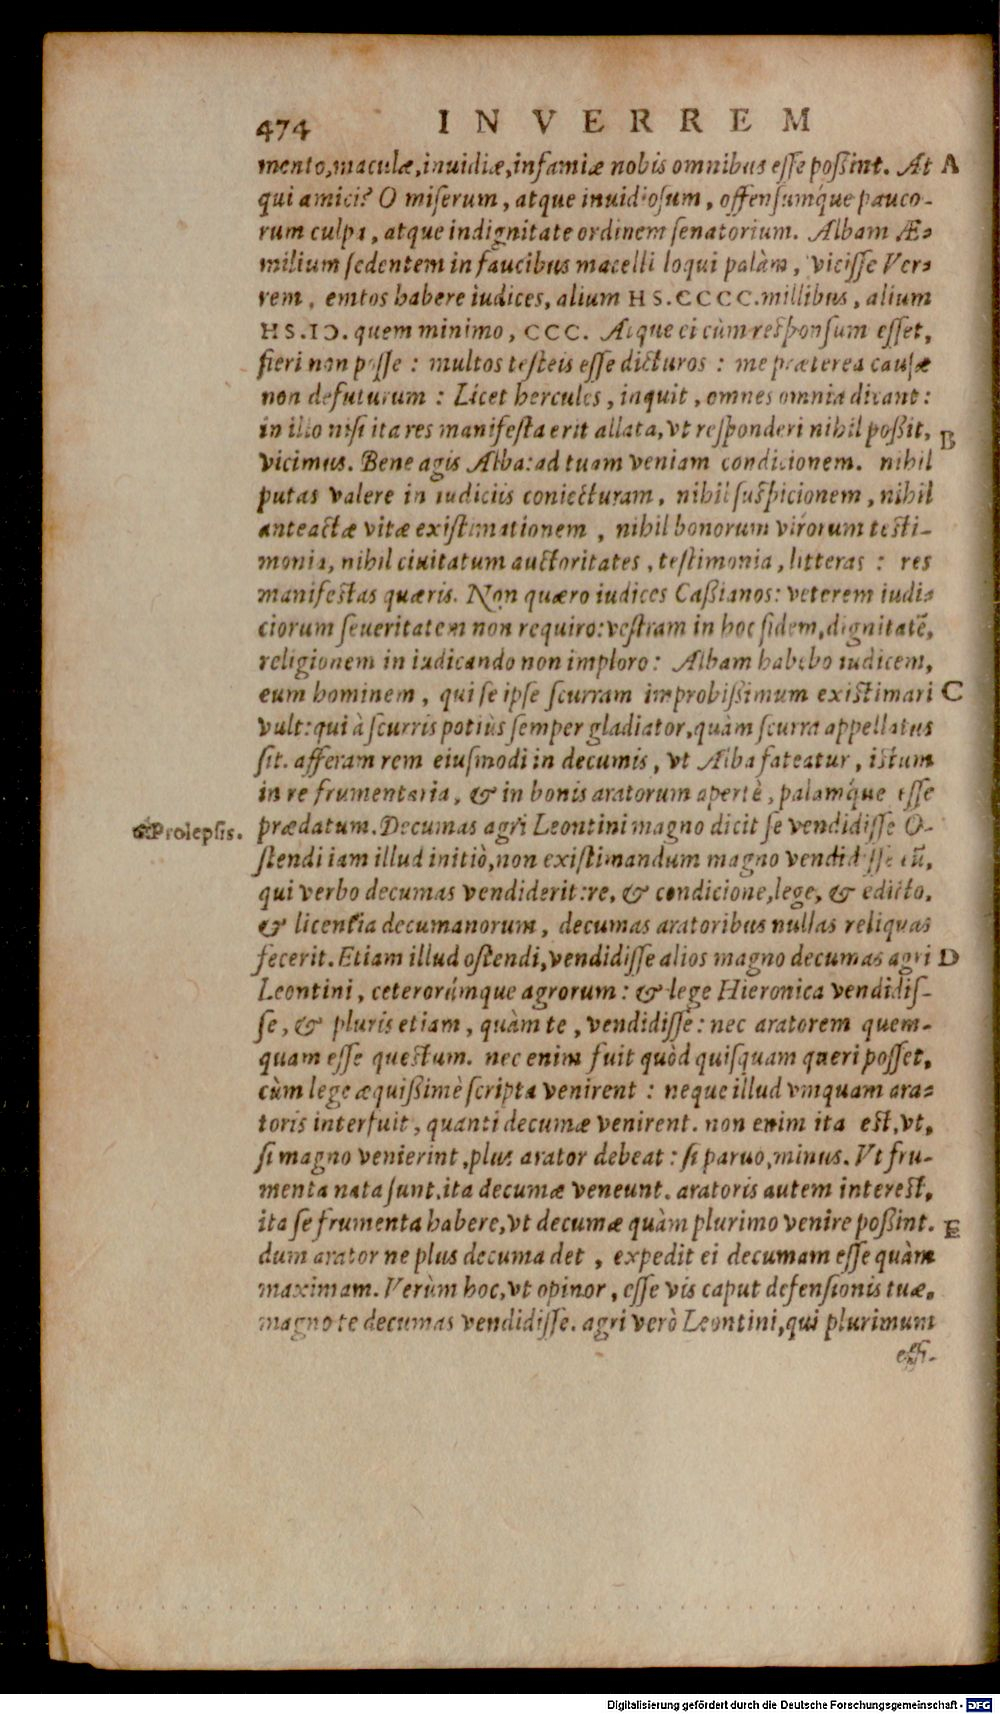 474 IN VERREM
mento, maculæ, inuidiæ, infamiæ nobis omnibus esse poßint. At A
qui amici? O miserum, atque inuidiosum, offensumq́ue pauco-
rum culpa, atque indignitate ordinem senatorium. Albam Æ-
milium sedentem in faucibus macelli loqui palàm, vicisse Ver-
rem, emtos habere iudices, alium HS.CCCC.millibus, alium
HS.IↃ. quem minimo, CCC. Atque ei cùm responsum esset,
fieri non posse : multos testeis esse dicturos : me præterea causæ
non defuturum : Licet hercules, inquit, omnes omnia dicant :
in illo nisi ita res manifesta erit allata, vt responderi nihil poßit, B
vicimus. Bene agis Alba: ad tuam veniam condicionem. nihil
putas valere in iudiciis coniecturam, nihil suspicionem, nihil
anteactæ vitæ existimationem, nihil bonorum virorum testi-
monia, nihil ciuitatum auctoritates, testimonia, litteras : res
manifestas quæris. Non quæro iudices Caßianos: veterem iudi-
ciorum seueritatem non requiro: vestram in hoc fidem, dignitatē,
religionem in iudicando non imploro: Albam habebo iudicem,
eum hominem, qui se ipse scurram improbißimum existimari C
vult: qui à scurris potiùs semper gladiator, quàm scurra appellatus
sit. afferam rem eiusmodi in decumis, vt Alba fateatur, istum
in re frumentaria, & in bonis aratorum apertè, palamq́ue esse
Prolepsis. prædatum. Decumas agri Leontini magno dicit se vendidisse O-
stendi iam illud initiò, non existimandum magno vendidisse eū,
qui verbo decumas vendiderit: re, & condicione, lege, & edicto,
& licentia decumanorum, decumas aratoribus nullas reliquas
fecerit. Etiam illud ostendi, vendidisse alios magno decumas agri D
Leontini, ceterorúmque agrorum: & lege Hieronica vendidis-
se, & pluris etiam, quàm te, vendidisse: nec aratorem quem-
quam esse questum. nec enim fuit quòd quisquam queri posset,
cùm lege æquißimè scripta venirent : neque illud vmquam ara-
toris interfuit, quanti decumæ venirent. non enim ita est, vt,
si magno venierint, plus arator debeat : si paruo, minus. Vt fru-
menta nata sunt, ita decumæ veneunt. aratoris autem interest,
ita se frumenta habere, vt decumæ quàm plurimo venire poßint. E
dum arator ne plus decuma det, expedit ei decumam esse quàm
maximam. Verùm hoc, vt opinor, esse vis caput defensionis tuæ,
magno te decumas vendidisse. agri verò Leontini, qui plurimum
effi-
Digitalisierung gefördert durch die Deutsche Forschungsgemeinschaft - DFG